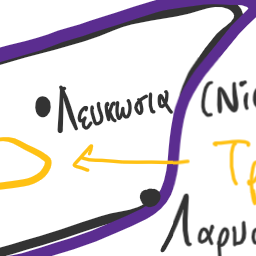 Λευκωσια (Ni
Τρ
Λαρν